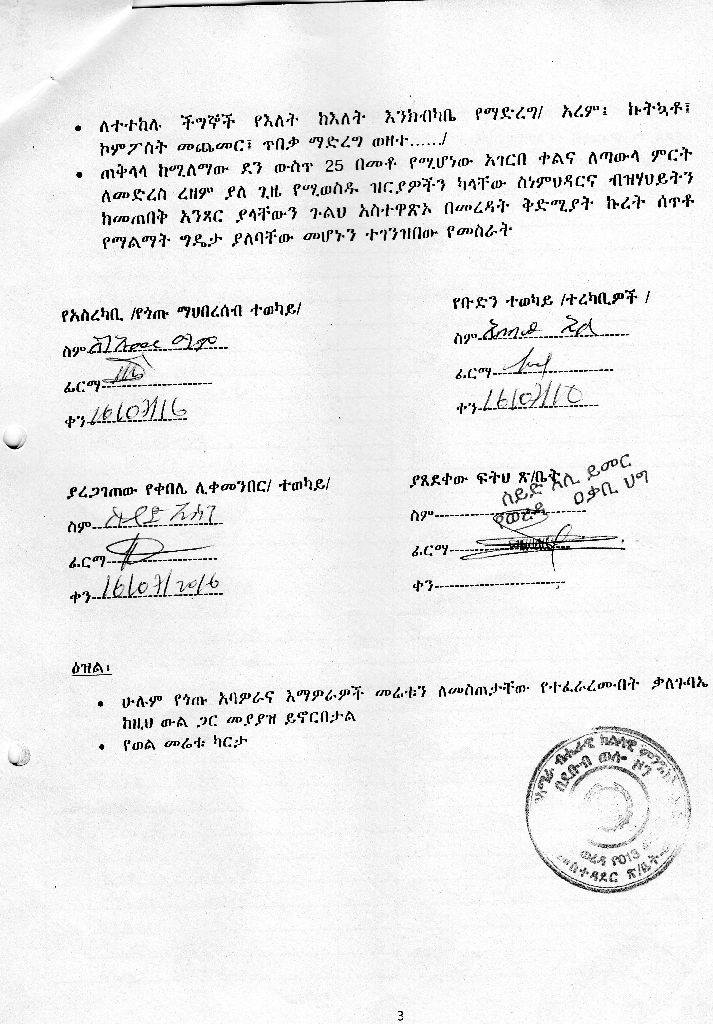 • ለተተከሉ ችግኞች የእለት ከእለት እንክብካቤ የማድረግ/ አረም፤ ኩትኳቶ፣
ኮምፖስት መጨመር፣ ጥበቃ ማድረግ ወዘተ……/
• ጠቅላላ ከሚለማው ደን ውስጥ 25 በመቶ የሚሆነው አገርበ ቀልና ለጣውላ ምርት
ለመድረስ ረዘም ያለ ጊዜ የሚወስዱ ዝርያዎችን ካላቸው ስነምህዳርና ብዝሃህይትን
ከመጠበቅ አንጻር ያላቸውን ጉልህ አስተዋጽኦ በመረዳት ቅድሚያት ኩረት ሰጥቶ
የማልማት ግዴታ ያለባቸው መሆኑን ተገንዝበው የመስራት
የአስረካቢ /የጎጡ ማህበረሰብ ተወካይ/
ስም
ፊርማ
ቀን 16/07/16
የቡድን ተወካይ /ተረካቢዎች /
ስም
ፊርማ
ቀን 16/07/10
ያረጋገጠው የቀበሌ ሊቀመንበር/ ተወካይ/
ስም
ፊርማ
ቀን 16/07/2016
ያጸደቀው ፍትህ ጽ/ቤት
ስም ሰይድ አሊ ይመር
የወረዳ ዐቃቢ ህግ
ፊርማ
ቀን
ዕዝል፡
• ሁሉም የጎጡ አባዎራና እማዎራዎች መሬቱን ለመስጠታቸው የተፈራረሙበት ቃለጉባኤ
ከዚህ ውል ጋር መያያዝ ይኖርበታል
• የወል መሬቱ ካርታ
በደቡብ ወሎ ዞን
3